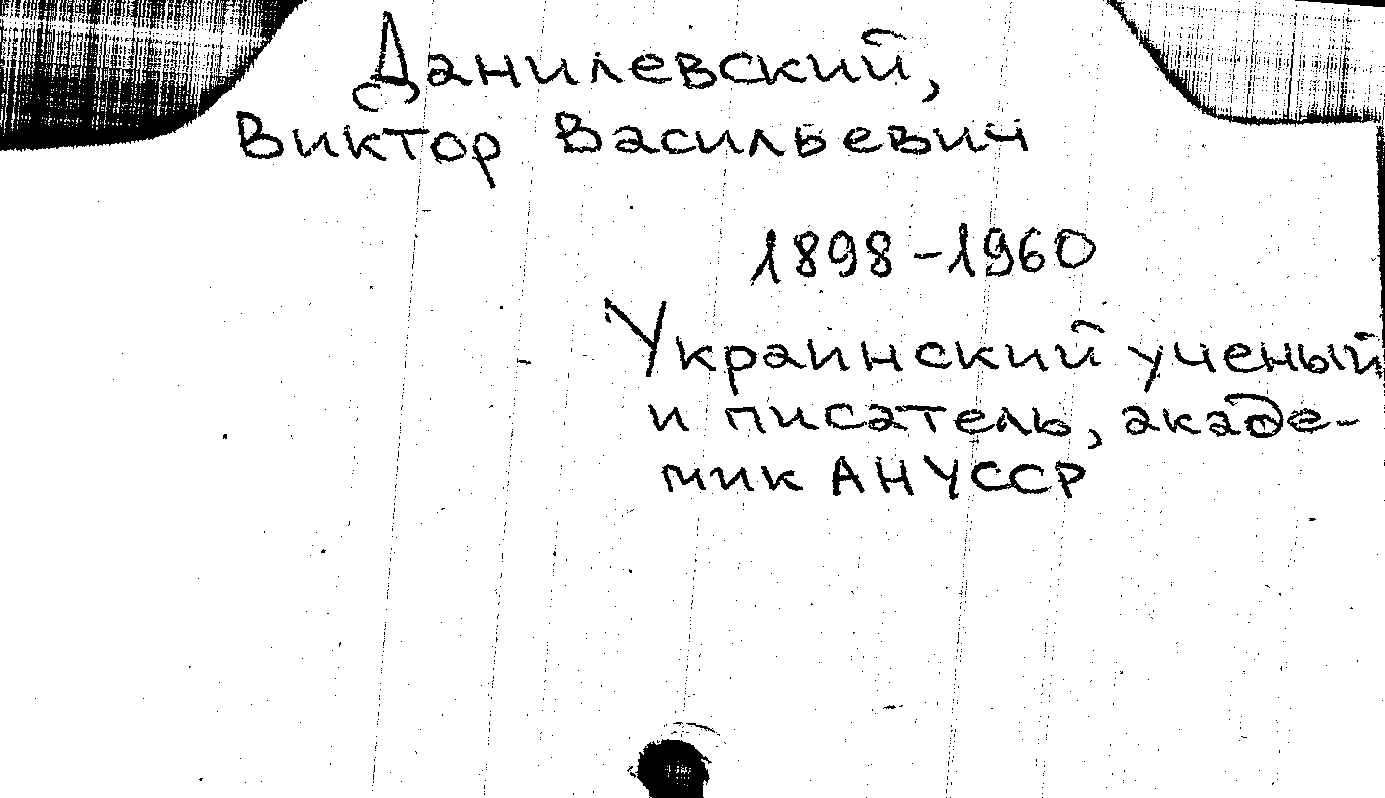 Данилевский,
Виктор Васильевич
1898-1960
Украинский ученый
и писатель, акаде-
мик АНУССР